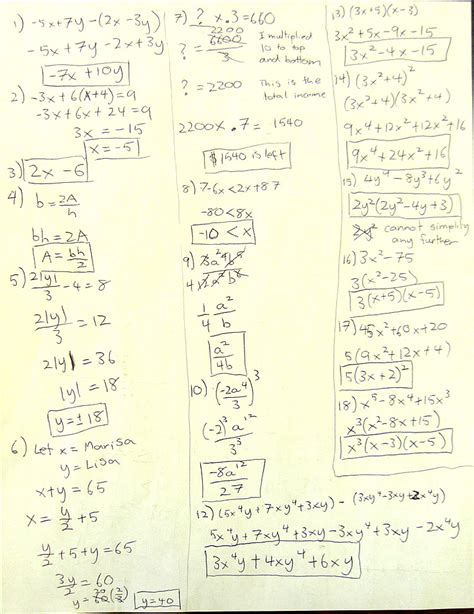 1) -5x+7y-(2x-3y)
-5x+7y-2x+3y
-7x+10y
2) -3x+6(x+4)=9
-3x+6x+24=9
3x = -15
x=-5
3) 2x-6
4) b= 2A/h
bh=2A
A= bh/2
5) 2|y|/3 -4=8
2|y|/3 = 12
2|y| = 36
|y| = 18
y=±18
6) Let x = Marisa
y = Lisa
x+y=65
x= y/2 +5
y/2 +5+y=65
3y/2 = 60
y=40
7) ? x.3=660
?= 6600/3
2200
I multiplied
10 to top
and bottom
?=2200
This is the
total income
2200x.7= 1540
$1540 is left
8) 7-6x<2x+87
-80<8x
-10<x
9)
1/4 a²/b
a²/4b
10) (-2a⁴/3)³
(-2)³a¹²/3³
-8a¹²/27
12) (5x⁴y+7xy⁴+3xy)-(3xy⁴-3xy+2x⁴y)
5x⁴y+7xy⁴+3xy-3xy⁴+3xy-2x⁴y
3x⁴y+4xy⁴+6xy
13) (3x+5)(x-3)
3x²+5x-9x-15
3x²-4x-15
14) (3x²+4)²
(3x²+4)(3x²+4)
9x⁴+12x²+12x²+16
9x⁴+24x²+16
15) 4y⁴-8y³+6y²
2y²(2y²-4y+3)
cannot simplify
any further
16) 3x²-75
3(x²-25)
3(x+5)(x-5)
17) 45x²+60x+20
5(9x²+12x+4)
5(3x+2)²
18) x⁵-8x⁴+15x³
x³(x²-8x+15)
x³(x-3)(x-5)